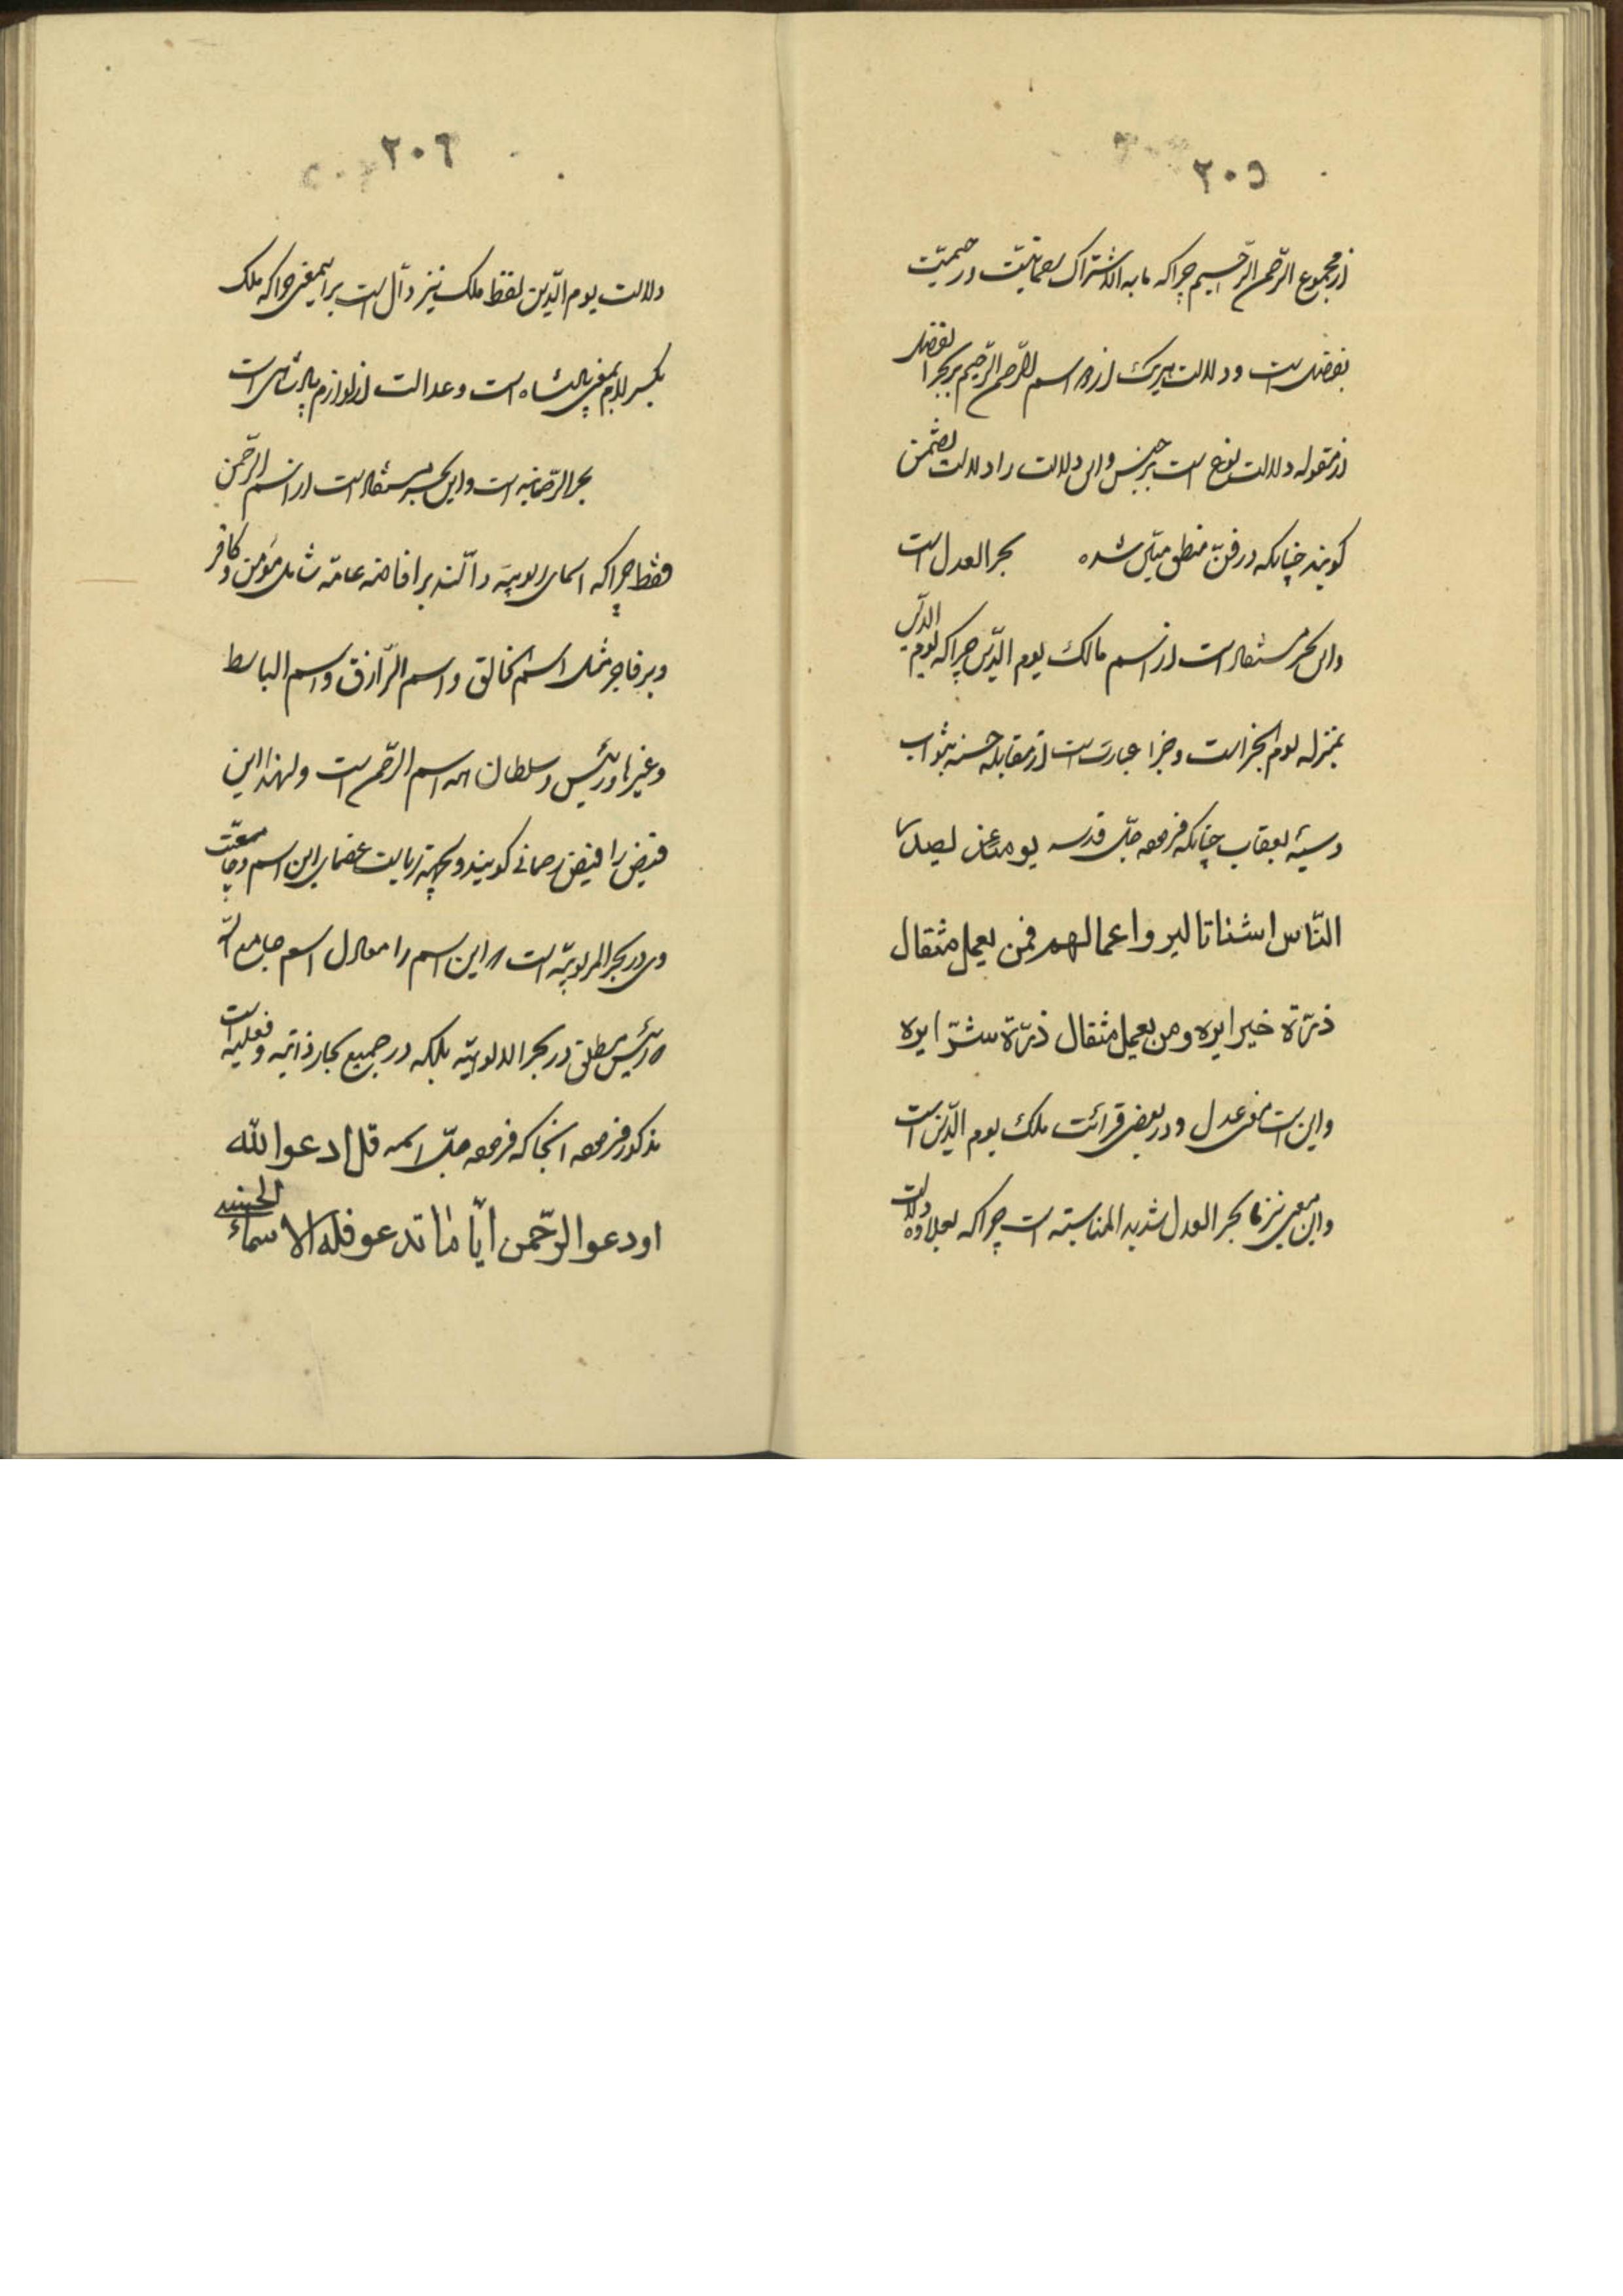 ٢٠٥
از مجموع الرّحمن الرّحیم چرا که ما به الاشتراک رحمانیّت و رحیمیّت
تفضل است و دلالت هر یک از دو اسم الرّحمن الرّحیم بر بحر التفضل
از مقوله دلالت نوع است بر جنس و این دلالت را دلالت تضمّن
گویند چنانکه در فنّ منطق مبیّن شده بحر العدل است
و این بحر مستفاد است از اسم مالک یوم الدّین چرا که یوم الدّین
بمنزله یوم الجزاست و جزا عبارتست از مقابله حسنه بثواب
و سیّئه بعقاب چنانکه فرموده جلّ قدسه یومئذ یصدر
النّاس اشتاتا لیروا اعمالهم فمن یعمل مثقال
ذرّة خیرا یره و من یعمل مثقال ذرّة شرّا یره
و این است معنی عدل و در بعضی قرائت ملک یوم الدّین است
و این معنی نیز با بحر العدل شدید المناسبته است چرا که بعلاوه دلالت
٢٠٦
دلالت یوم الدّین لفظ ملک نیز دالّ است بر این معنی چرا که ملک
بکسر لام بمعنی پادشاه است و عدالت از لوازم پادشاهی است
بحر الرّحمانیه است و این بحر مستفاد است از اسم الرّحمن
فقط چرا که اسمای الوهیّه دالّند بر افاضه عامّه شامل مؤمن و کافر
و برّ و فاجر مثل اسم الخالق و اسم الرّازق و اسم الباسط
و غیرها و رئیس و سلطان همه اسم الرّحمن است و لهذا این
فیض را فیض رحمانی گویند و بجهة زیادت عضمای این اسم و جامعیّت
وی در بحر المربوبیّه است که این اسم را معادل اسم جامع الله
که رئیس مطلق در بحر الالوهیّه بلکه در جمیع بحار ذاتیه و فعلیه است
مذکور فرموده انجا که فرموده جلّ اسمه قل ادعوا الله
او ادعوا الرّحمن ایّا ما تدعوا فله الاسماء الحسنی